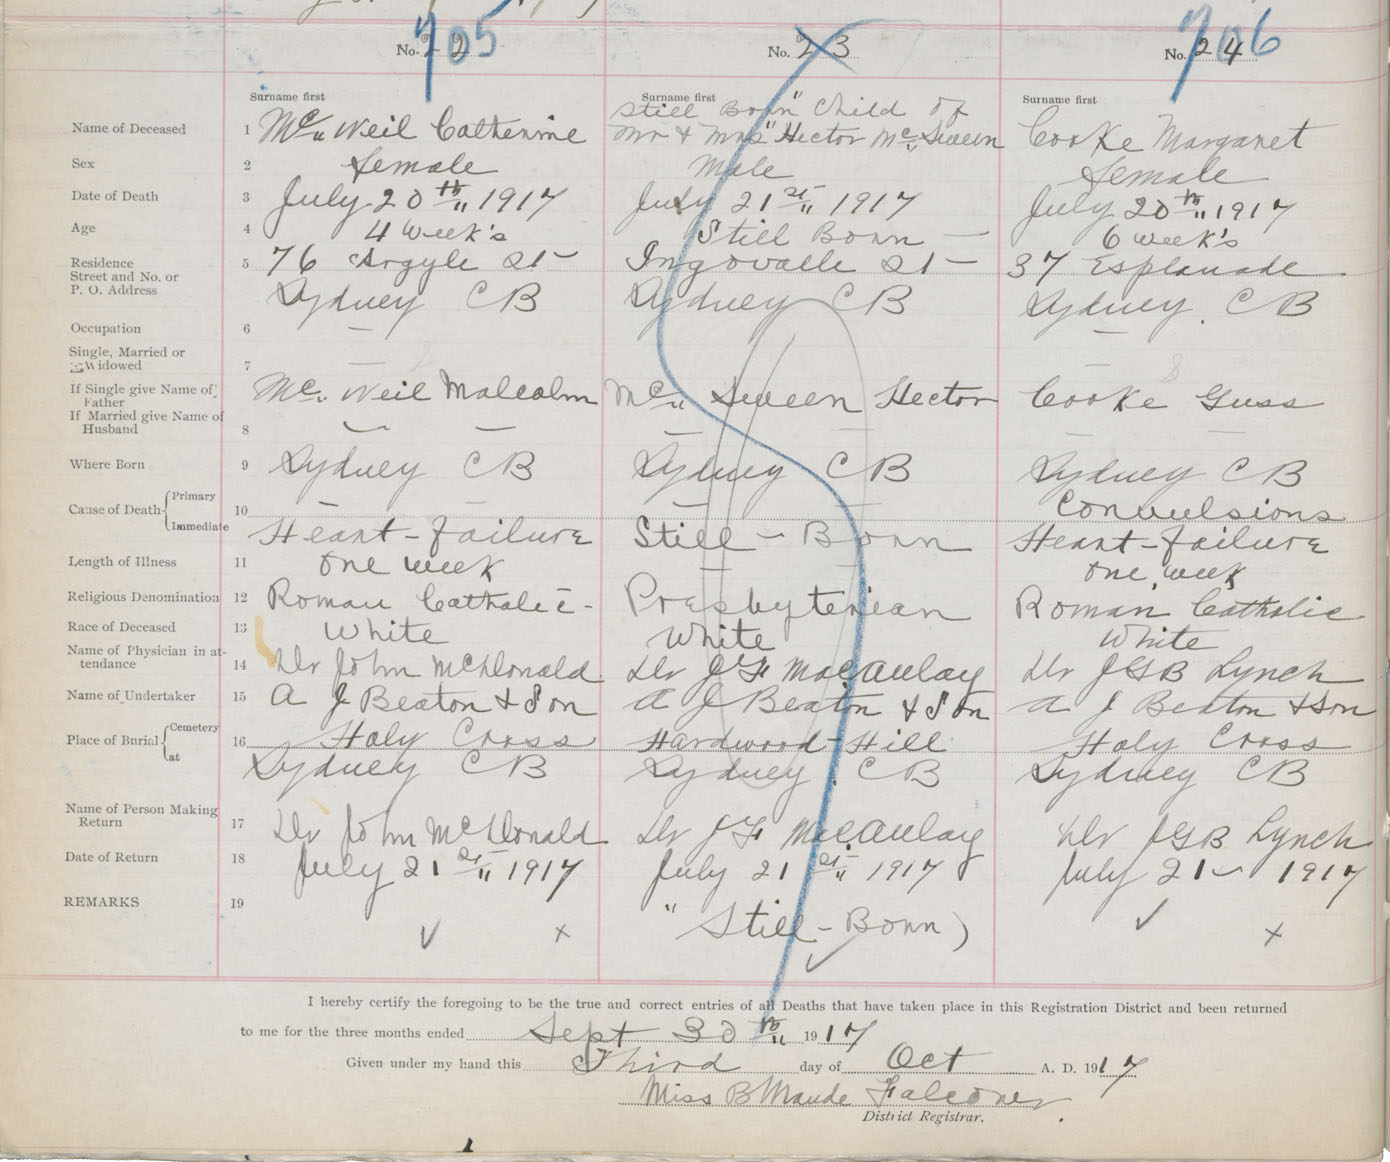 No. 22 705
No. 23
No. 24 706
Surname first
Surname first
Surname first
Name of Deceased 1 Mc Neil Catherine
Still Born" Child of
Mr & Mrs" Hector Mc Sween
Cooke Margaret
Sex 2 Female Male Female
Date of Death 3 July 20th 1917 July 21st 1917 July 20th 1917
Age 4 4 week's Still Born — 6 week's
Residence
Street and No. or
P. O. Address
5 76 Argyle St 37 Esplanade
Sydney CB Sydney CB Sydney. CB
Occupation 6 — —
Single, Married or
Widowed 7 —
If Single give Name of
Father
Mc Neil Malcolm Mc Sween Hector Cooke Guss
If Married give Name of
Husband 8 — — — — —
Where Born 9 Sydney CB Sydney CB Sydney CB
Cause of Death { Primary 10 — — — Convulsions
Immediate Heart-failure Still-Born Heart-failure
Length of Illness 11 one week — one week
Religious Denomination 12 Roman Catholic- Presbyterian Roman Catholic
Race of Deceased 13 White White White
Name of Physician in at-
tendance 14 Dr John McDonald Dr J F MacAulay Dr JGB Lynch
Name of Undertaker 15 A J Beaton & Son A J Beaton & Son A J Beaton & Son
Place of Burial { Cemetery 16 Holy Cross Hardwood-Hill Holy Cross
at Sydney CB Sydney. CB Sydney CB
Name of Person Making
Return 17 Dr John McDonald Dr J F MacAulay Dr JGB Lynch
Date of Return 18 July 21st 1917 July 21st 1917 July 21 1917
REMARKS 19 "Still-Born)
I hereby certify the foregoing to be the true and correct entries of all Deaths that have taken place in this Registration District and been returned
to me for the three months ended Sept 30th 1917
Given under my hand this Third day of Oct A. D. 1917
Miss B Maude Falconer
District Registrar.